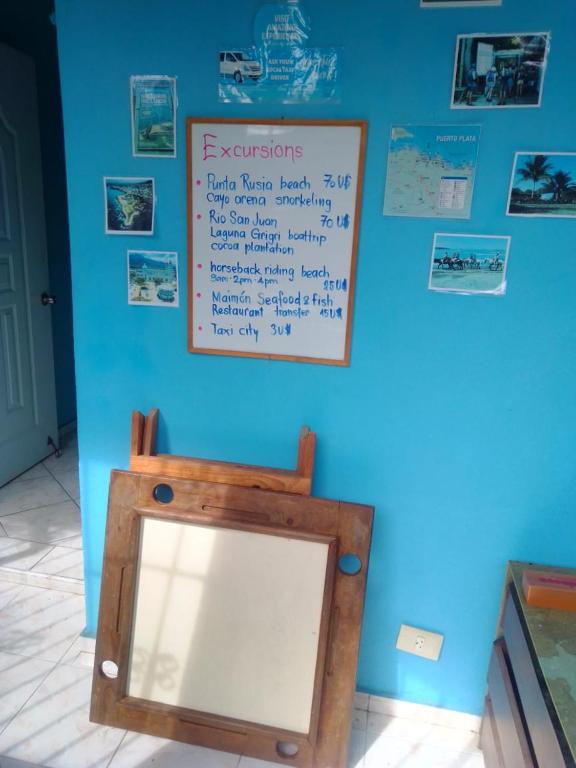 VISIT
AMAZING
EXPERIENCE
ASK YOUR
LOCAL TAXI
DRIVER
PUERTO PLATA
Excursions
• Punta Rusia beach 70 U$
Cayo arena snorkeling
• Rio San Juan 70 U$
Laguna Grigri boattrip
cocoa plantation
• horseback riding beach
9am-2pm-4pm 25U$
• Maimón Seafood & Fish
Restaurant transfer 15U$
• Taxi city 3U$